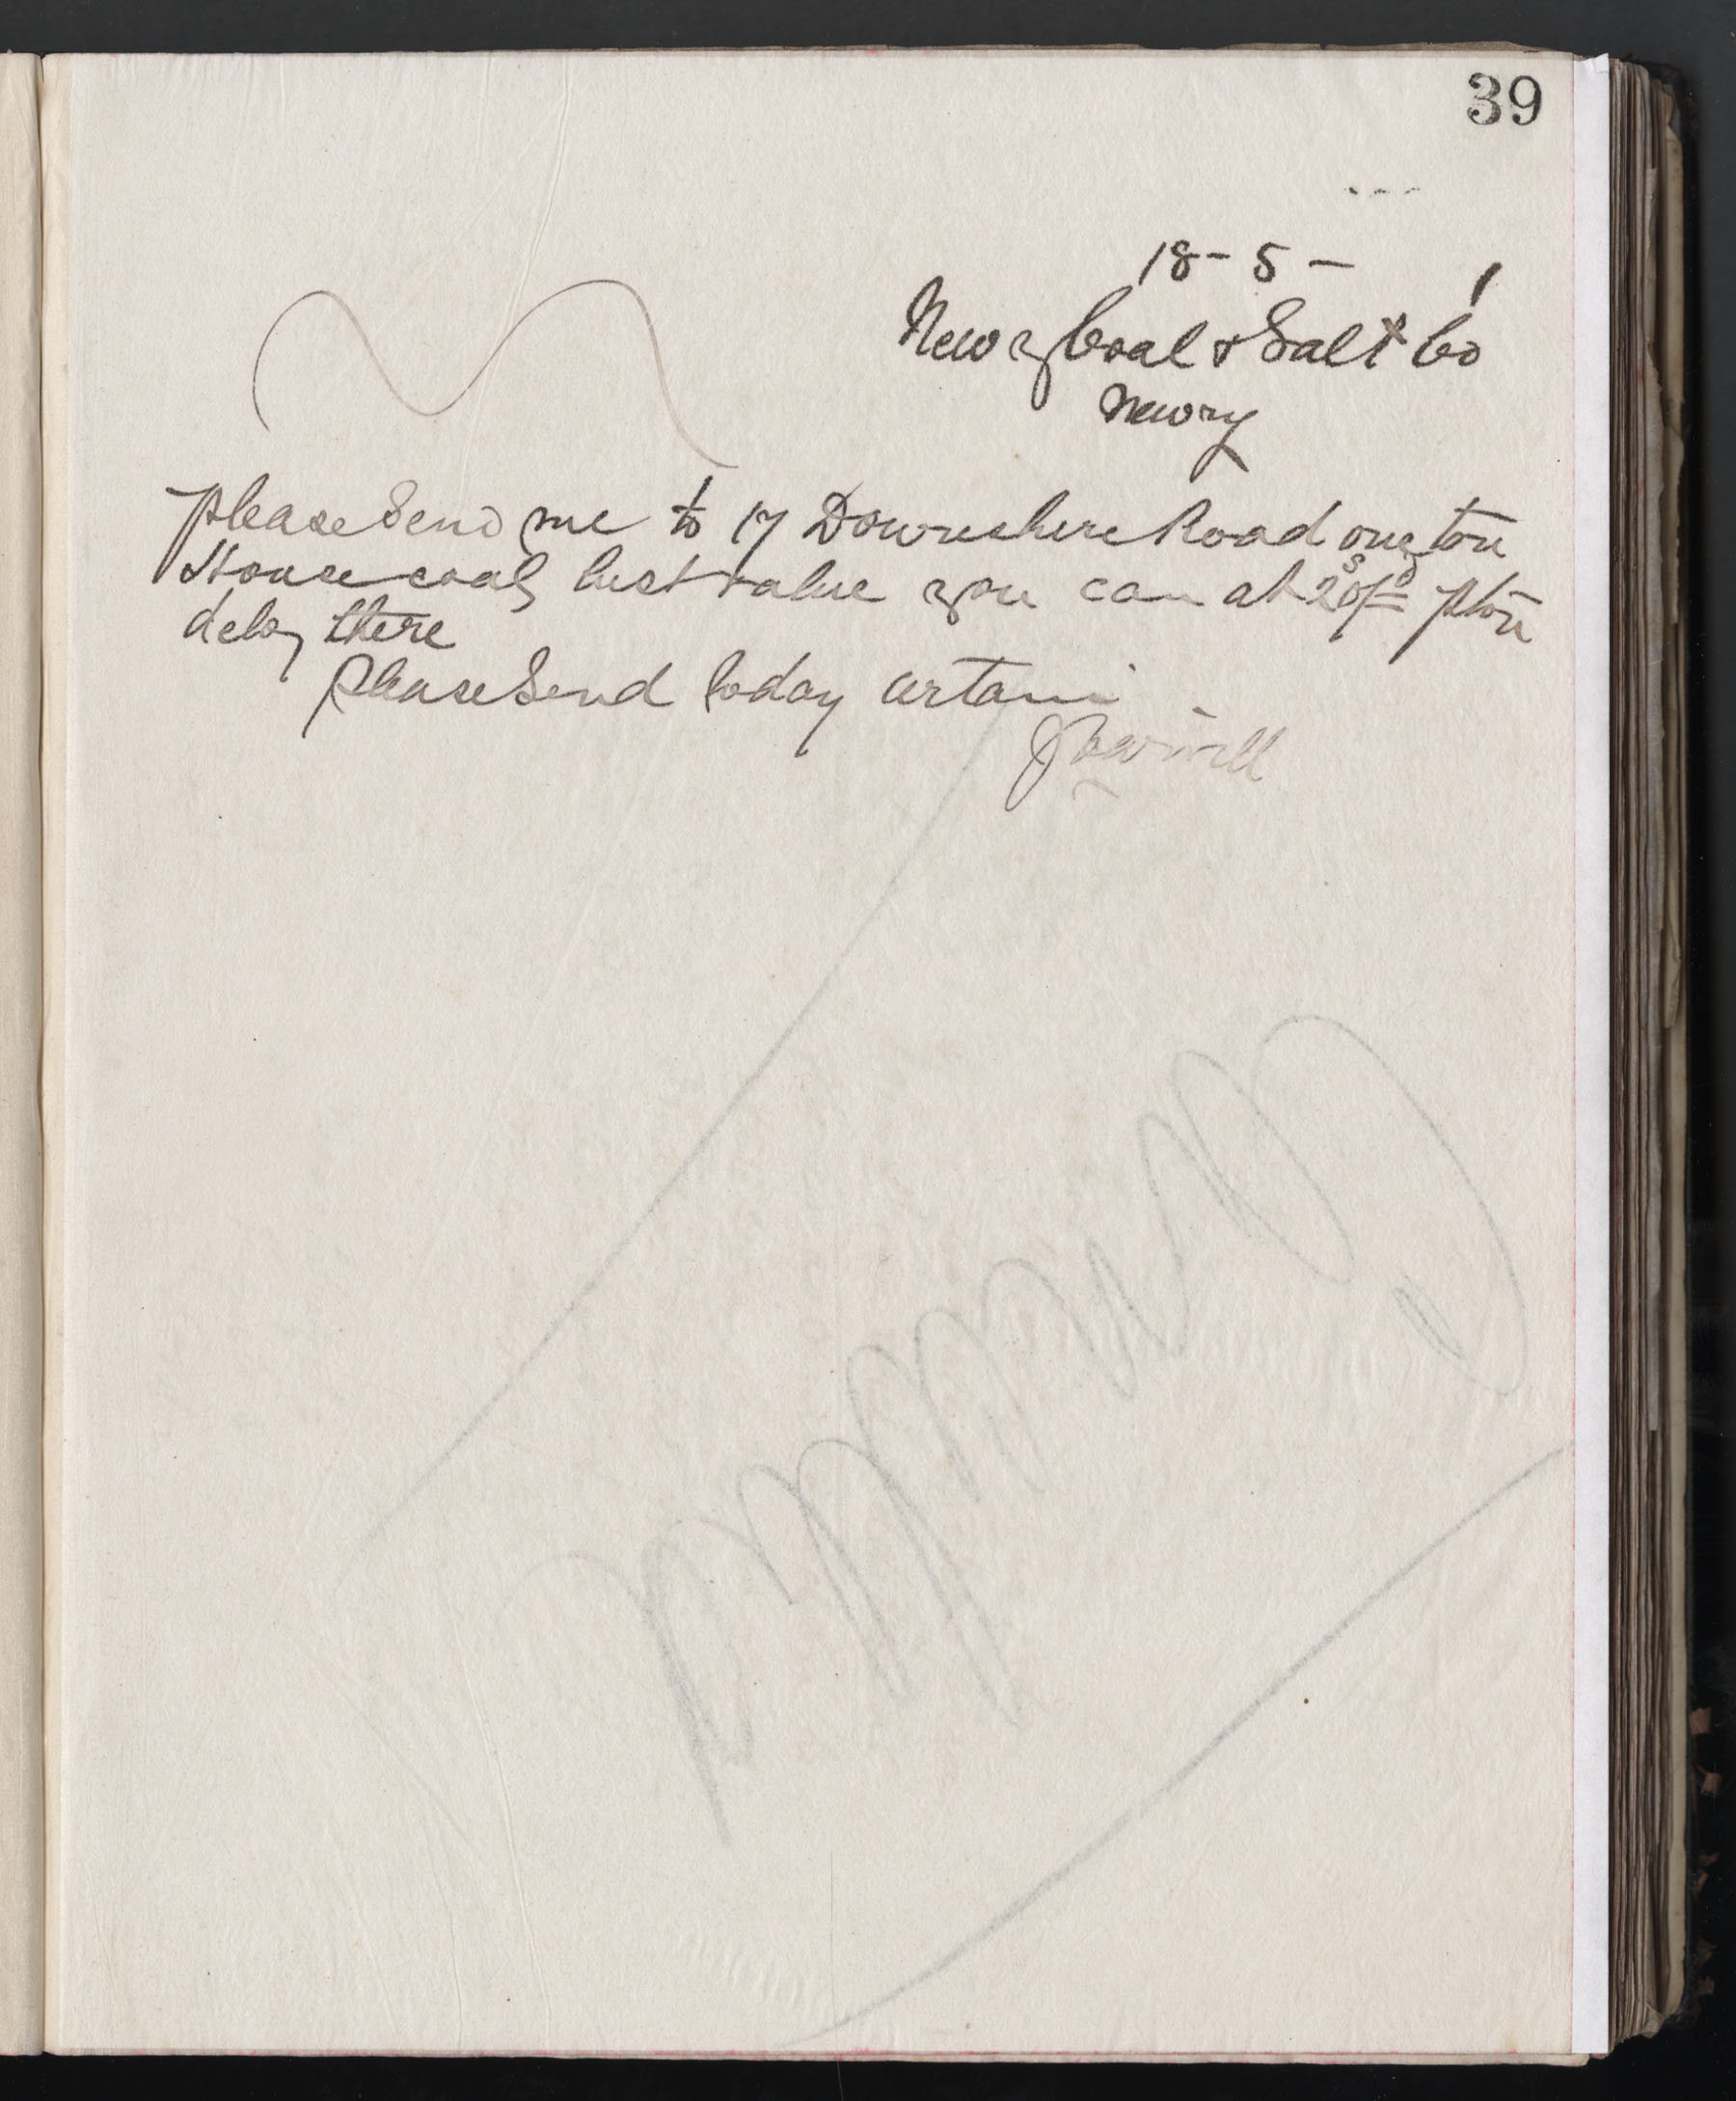 39
18-5- 1
Newry Coal & Salt Co
Newry
Please Send me to 17 Downshire Road one ton
House coal best value you can at 20s/0d p ton
dely there
Please Send today certain